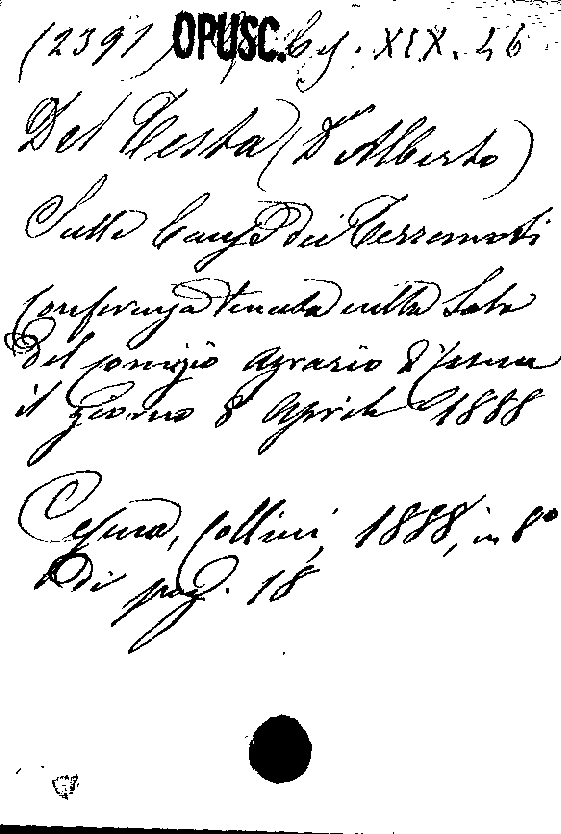 (2391) OPUSC. Ces. XIX. 46
Del Testa (Dr Alberto)
Sulle Cause dei Terremoti
Conferenza tenuta nella Sala
del comizio Agrario di Cesena
il giorno 8 Aprile 1888
Cesena, Collini, 1888, in 8º
di pag. 18